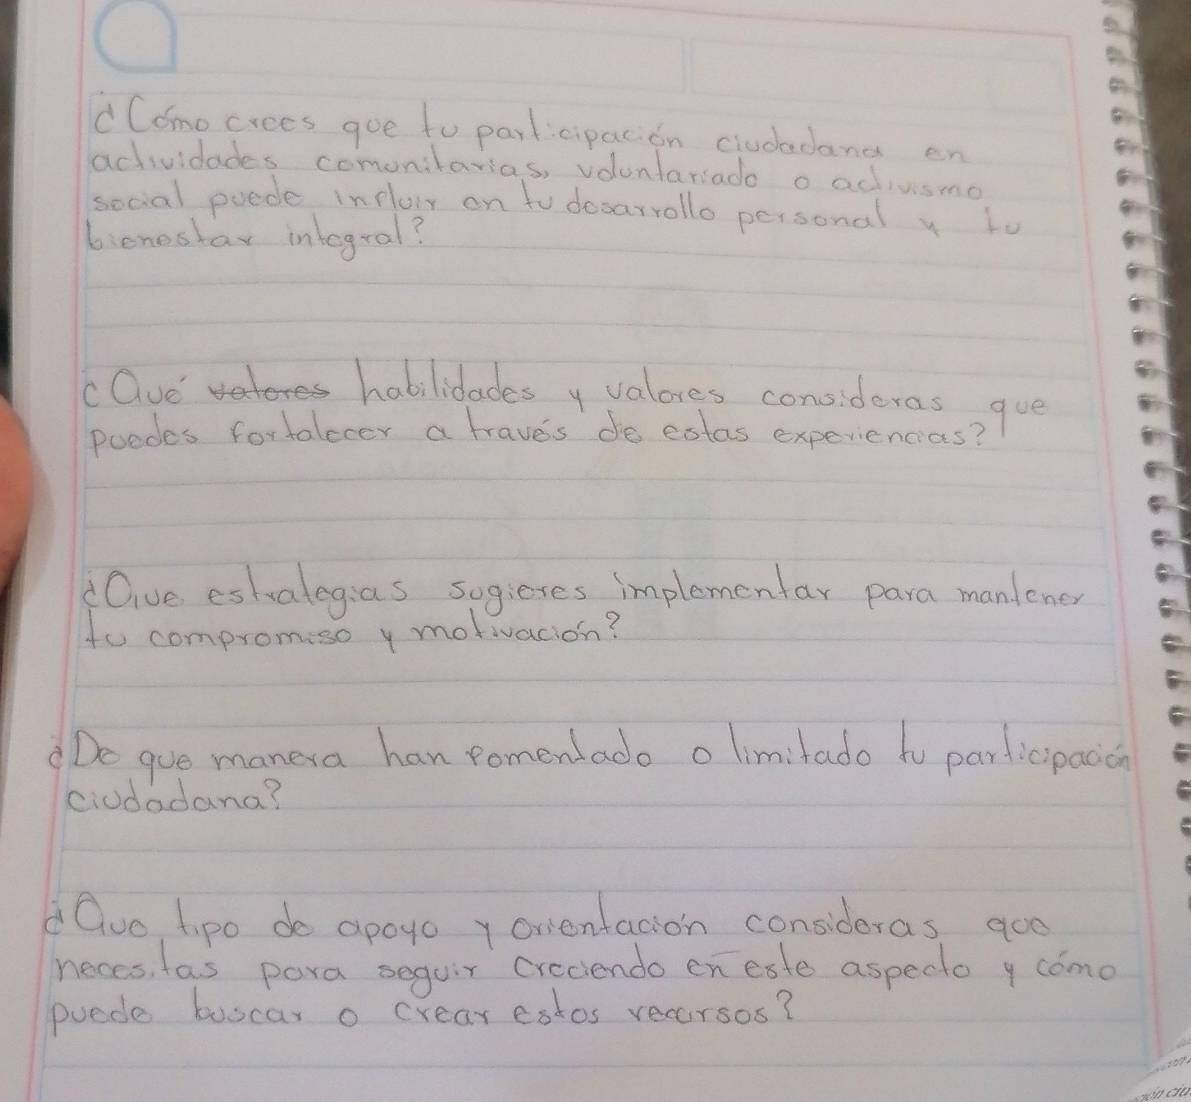 ¿Cómo crees que tu participación ciudadana en
actividades comunitarias, voluntariado o activismo
social puede influir en tu desarrollo personal y tu
bienestar integral?
¿Qué valores habilidades y valores consideras que
puedes fortalecer a través de estas experiencias?
¿Que estrategias sugieres implementar para mantener
tu compromiso y motivación?
¿De que manera han fomentado o limitado tu participación
ciudadana?
¿Que tipo de apoyo y orientación consideras que
necesitas para seguir creciendo en este aspecto y cómo
puede buscar o crear estos recursos?